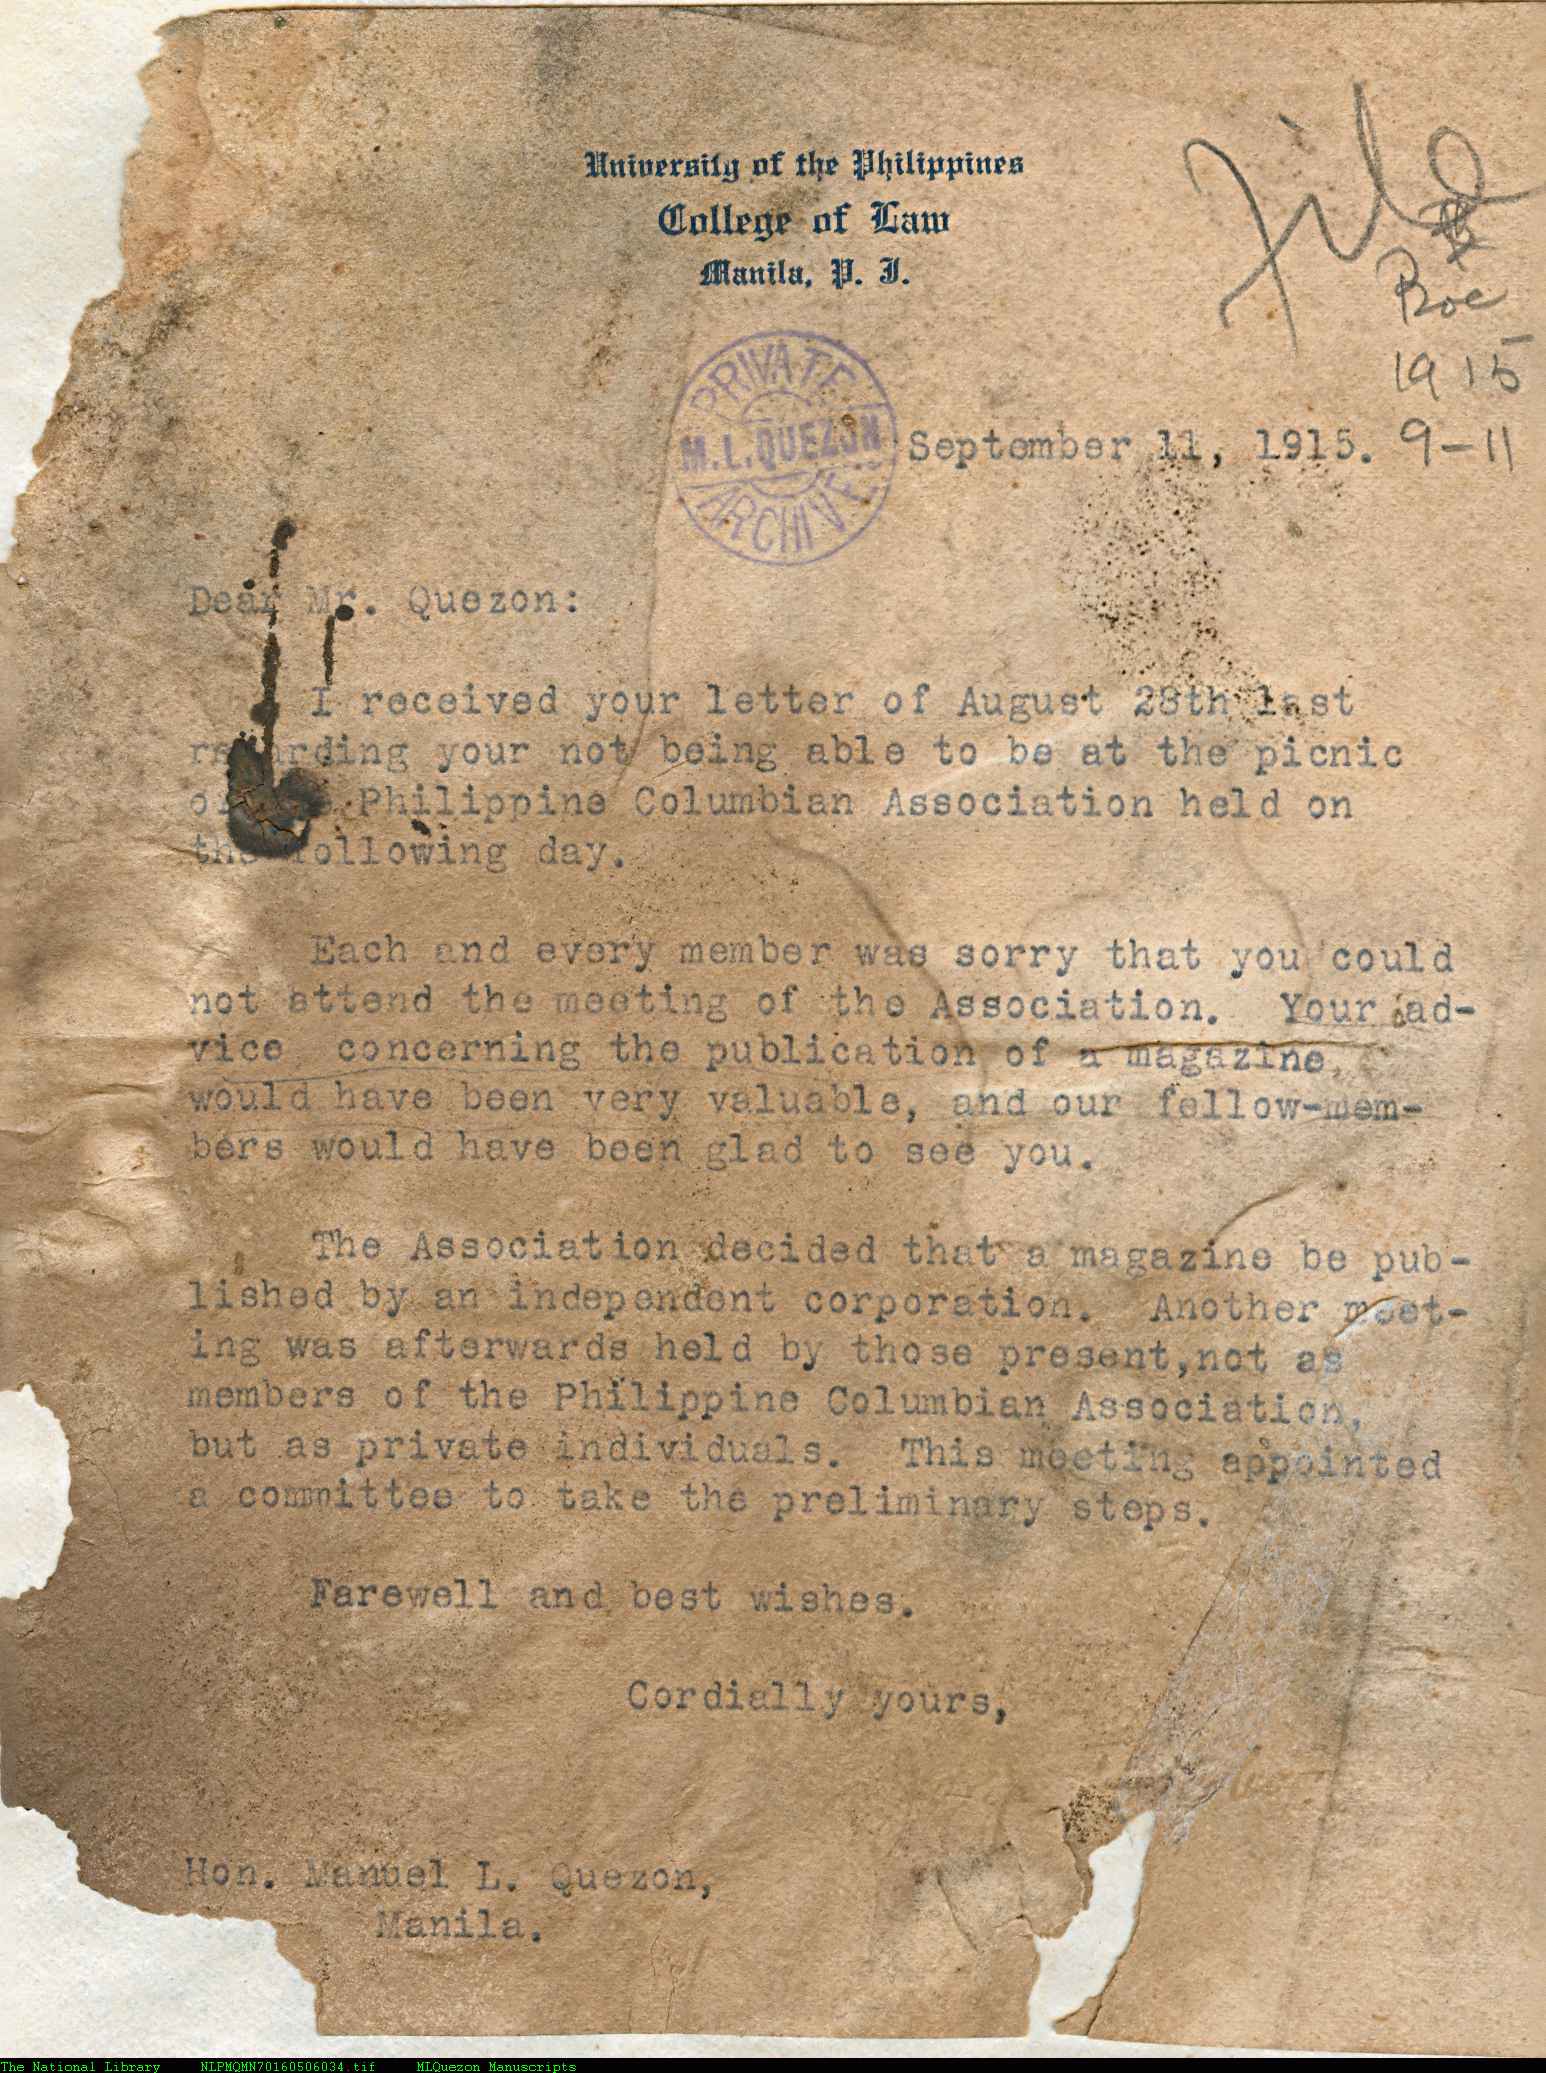 University of the Philippines
College of Law
Manila, P. I.
File
1915
9-11
PRIVATE
M. L. QUEZON
ARCHIVE
September 11, 1915.
Dear Mr. Quezon:
I received your letter of August 28th last
regarding your not being able to be at the picnic
of the Philippine Columbian Association held on
the following day.
Each and every member was sorry that you could
not attend the meeting of the Association. Your ad-
vice concerning the publication of a magazine
would have been very valuable, and our fellow-mem-
bers would have been glad to see you.
The Association decided that a magazine be pub-
lished by an independent corporation. Another meet-
ing was afterwards held by those present,not as
members of the Philippine Columbian Association,
but as private individuals. This meeting appointed
a committee to take the preliminary steps.
Farewell and best wishes.
Cordially yours,
Hon. Manuel L. Quezon,
Manila.
The National Library NLPMQMN70160506034.tif MLQuezon Manuscripts